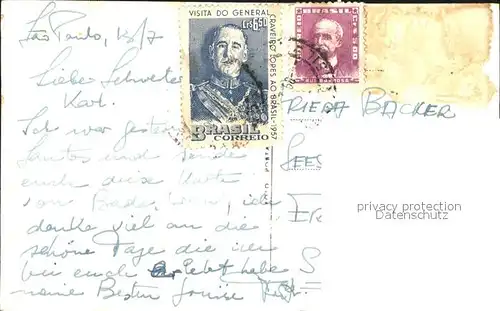 São Paulo, 18/7
Liebe Schwester
Karl.
Ich war gestern
Santos und sende
euch diese Karte
vom Badestrand, ich
denke viel an die
schöne Tage die ich
bei euch erlebt habe
meine Besten Louise
VISITA DO GENERAL
CRAVEIRO LOPES AO BRASIL-1957
Cr$ 6,50
BRASIL
CORREIO
BRASIL CORREIO
RUI BARBOSA
FRIEDA BACKER
SEES
privacy protection
Datenschutz